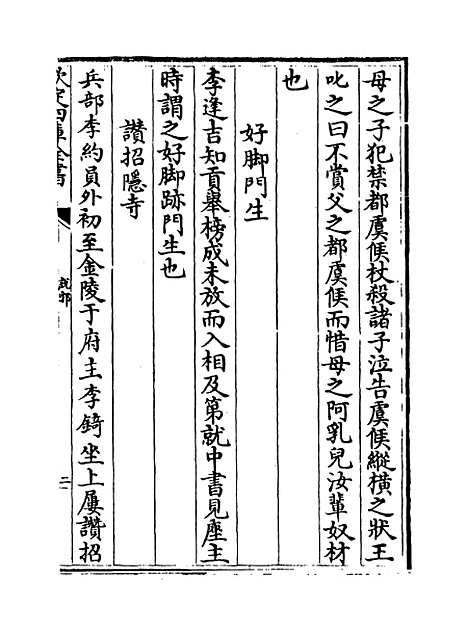 母之子犯禁都虞候杖殺諸子泣告虞候縱橫之狀王
叱之曰不賞父之都虞候而惜母之阿乳兒汝輩奴材
也
好脚門生
李逢吉知貢舉榜成未放而入相及第就中書見座主
時謂之好脚跡門生也
讚招隱寺
兵部李約員外初至金陵于府主李錡坐上屢讚招
欽定四庫全書
說郛